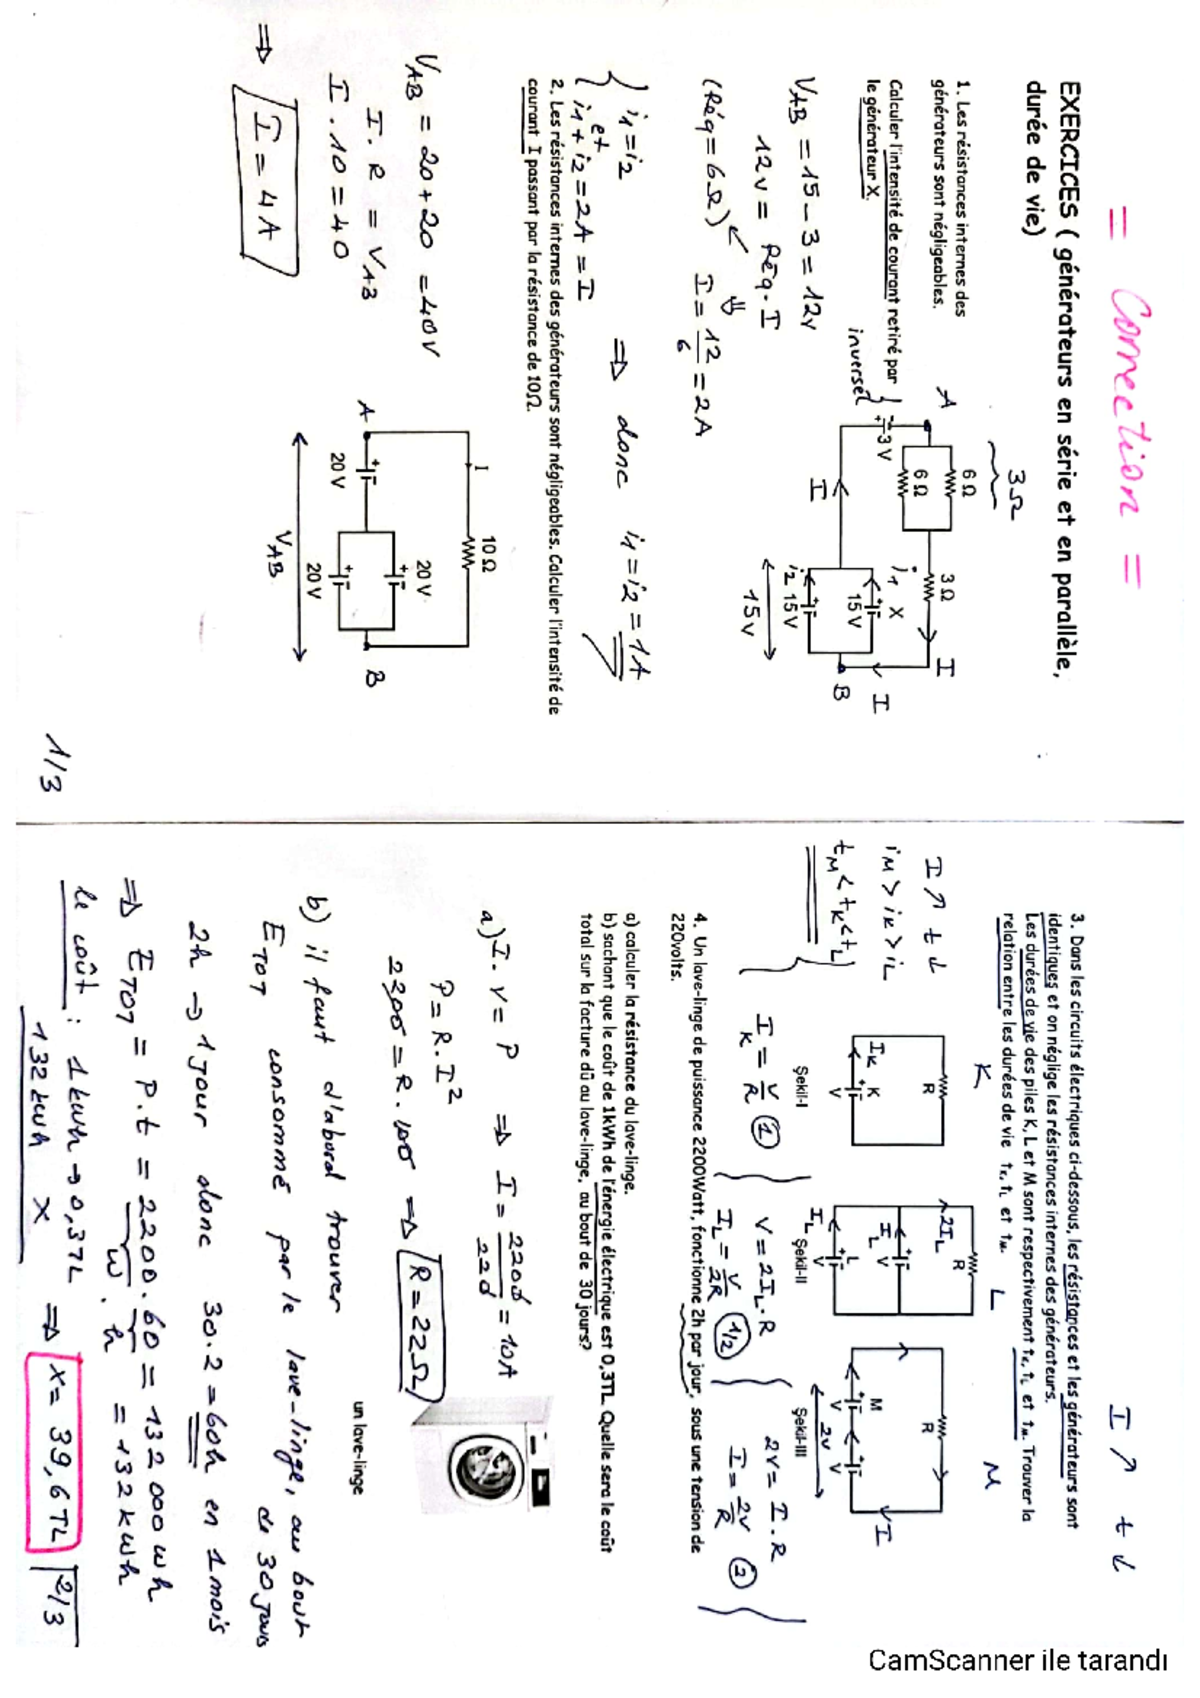 = Correction =
EXERCICES ( générateurs en série et en parallèle,
durée de vie)
1. Les résistances internes des
générateurs sont négligeables.
Calculer l'intensité de courant retiré par
le générateur X.
inversé
A
3Ω
6 Ω
6 Ω
3 Ω
I
- + 3 V
i1 X
15 V
i2 15 V
I
I
B
15V
VAB = 15 - 3 = 12V
12V = Rég . I
(Rég = 6Ω)
⇓
I = 12/6 = 2A
{ i1 = i2
et
i1 + i2 = 2A = I
⇒ donc i1 = i2 = 1A
2. Les résistances internes des générateurs sont négligeables. Calculer l'intensité de
courant I passant par la résistance de 10Ω.
VAB = 20 + 20 = 40V
I . R = VAB
I . 10 = 40
⇒ I = 4A
I
10 Ω
20 V
A
20 V
20 V
B
VAB
1/3
I ↗ t ↓
3. Dans les circuits électriques ci-dessous, les résistances et les générateurs sont
identiques et on néglige les résistances internes des générateurs.
Les durées de vie des piles K, L et M sont respectivement tK, tL et tM. Trouver la
relation entre les durées de vie tK, tL et tM.
I ↗ t ↓
iM > iK > iL
tM < tK < tL
K
L
M
R
IK K
V
Şekil-I
R
2IL
IL V
L
IL V
Şekil-II
R
M
V V
I
2V
Şekil-III
IK = V/R (1)
V = 2IL . R
IL = V/2R (1/2)
2V = I . R
I = 2V/R (2)
4. Un lave-linge de puissance 2200Watt, fonctionne 2h par jour, sous une tension de
220volts.
a) calculer la résistance du lave-linge.
b) sachant que le coût de 1kWh de l'énergie électrique est 0,3TL. Quelle sera le coût
total sur la facture dû au lave-linge, au bout de 30 jours?
a) I . V = P ⇒ I = 2200/220 = 10A
P = R . I²
2200 = R . 100 ⇒ R = 22Ω
un lave-linge
b) il faut d'abord trouver
ETOT consommé par le lave-linge, au bout
de 30 jours
2h → 1 jour donc 30.2 = 60h en 1 mois
⇒ ETOT = P.t = 2200 . 60 = 132 000 wh
W . h = 132 kwh
le coût : 1 kwh → 0,3TL
132 kwh X
⇒ X = 39,6 TL
2/3
CamScanner ile tarandı